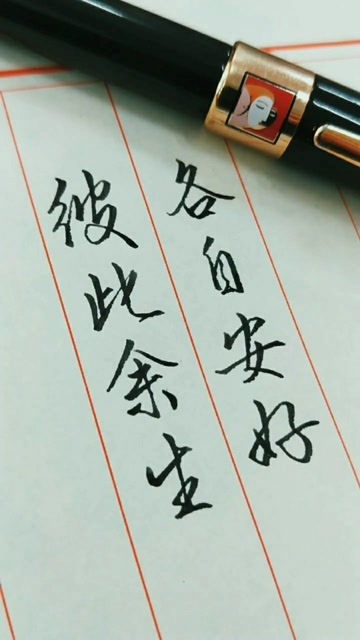 各自安好
彼此余生